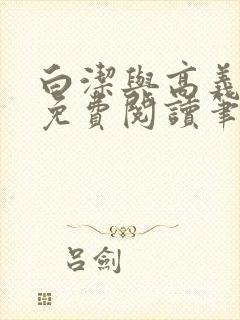 白潔與高義
免費閱讀筆
呂劍